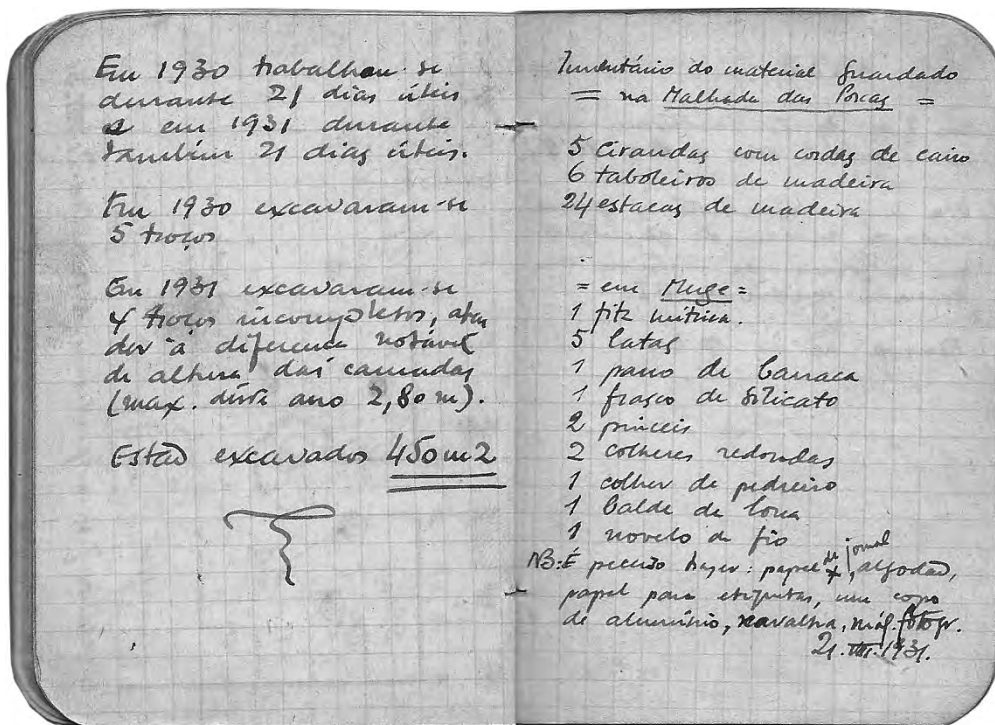 Em 1930 trabalhou-se
durante 21 dias úteis
e em 1931 durante
também 21 dias úteis.
Em 1930 excavaram-se
5 troços
Em 1931 excavaram-se
4 troços incompletos, aten
der à diferença notável
de altura das camadas
(max. deste ano 2,80 m).
Estão excavados 450m2
Inventário do material guardado
= na Malhada das Porcas =
5 cirandas com cordas de cairo
6 taboleiros de madeira
24 estacas de madeira
= em Muge =
1 fita métrica.
5 latas
1 pano de barraca
1 frasco de silicato
2 pinceis
2 colheres redondas
1 colher de pedreiro
1 balde de lona
1 novelo de fio
NB: É preciso trazer: papel de jornal, algodão,
papel para etiquetas, um copo
de aluminio, navalha, máq. fotogr.
21.VIII.1931.